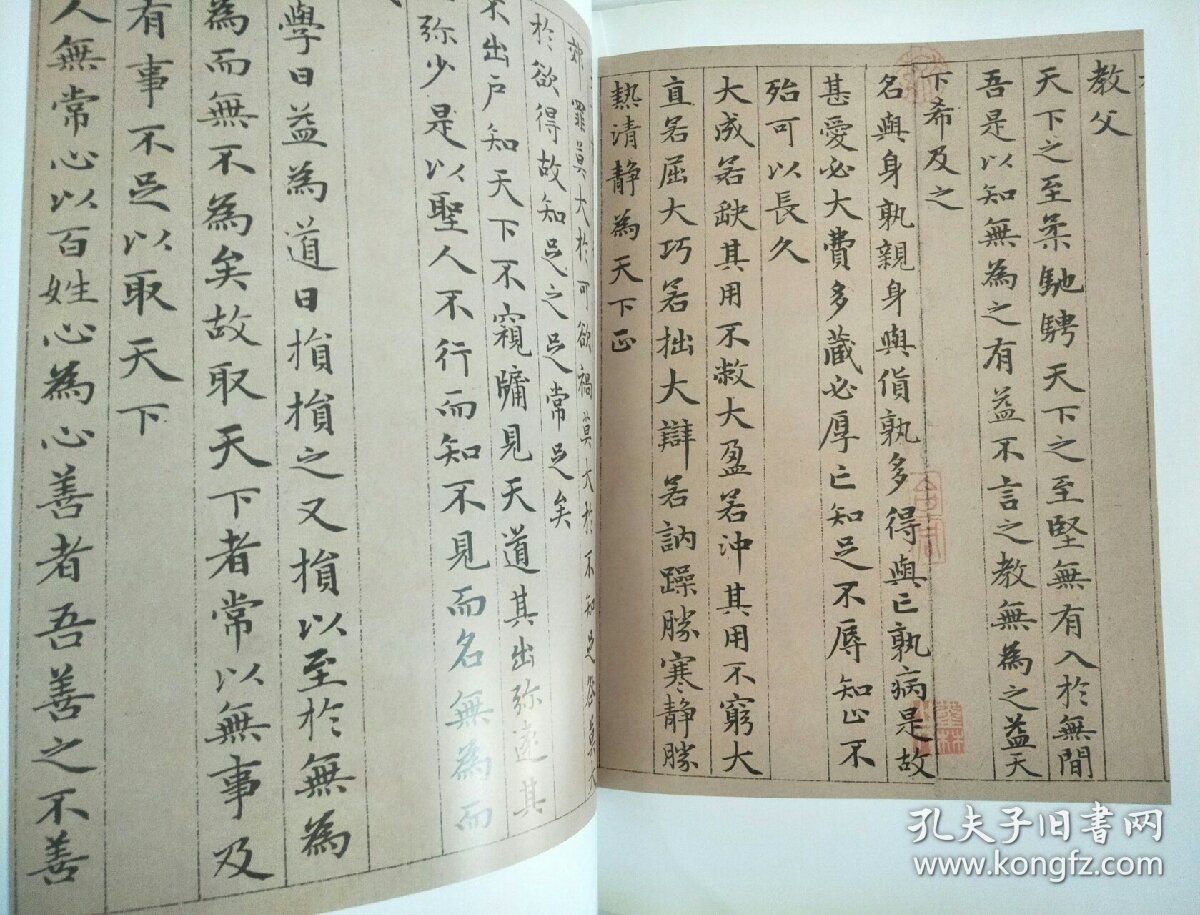 教父
天下之至柔馳騁天下之至堅無有入於無間
吾是以知無為之有益不言之教無為之益天
下希及之
名與身孰親身與貨孰多得與亡孰病是故
甚愛必大費多藏必厚亡知足不辱知止不
殆可以長久
大成若缺其用不敝大盈若沖其用不窮大
直若屈大巧若拙大辯若訥躁勝寒静勝
熱清静為天下正
郊罪莫大於可欲禍莫大於不知足咎莫大
於欲得故知足之足常足矣
不出戶知天下不窺牖見天道其出弥遠其
弥少是以聖人不行而知不見而名無為而
學日益為道日損損之又損以至於無為
為而無不為矣故取天下者常以無事及
有事不足以取天下
人無常心以百姓心為心善者吾善之不善
孔夫子旧书网
www.kongfz.com